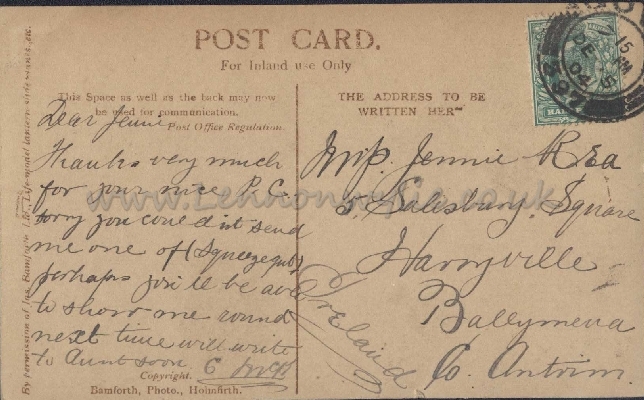 POST CARD.
For Inland use Only
This Space as well as the back may now
be used for communication.
Post Office Regulation.
Dear Jennie
Thanks very much
for your nice P.C.
sorry you could'nt send
me one of (Squeezegut)
perhaps you'll be able
to show me round
next time will write
to Aunt soon C McK
Copyright.
Bamforth, Photo., Holmfirth.
By permission of Jas. Bamforth, Ltd., Life-model lantern slide manfrs. etc.
THE ADDRESS TO BE
WRITTEN HERE
Miss Jennie Rea
5, Salisbury, Square
Harryville
Ballymena
Co. Antrim.
Ireland
7 15 PM
DE 5
04
397
www.Lennonwylie.co.uk